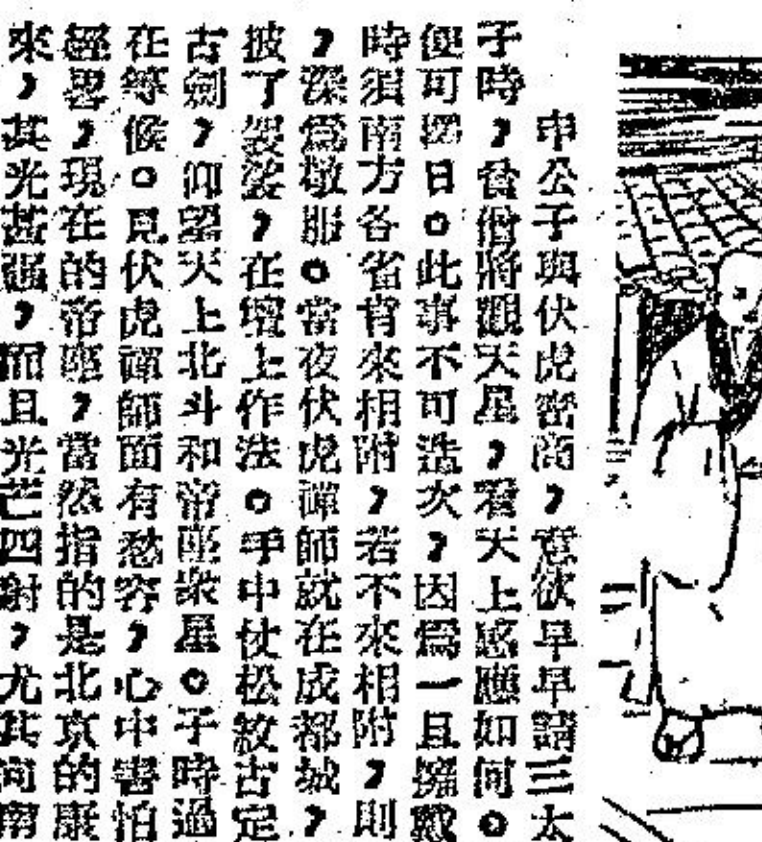 申公子與伏虎密商,意欲早早請三太
子時,貧僧將觀天星,看天上感應如何。
便可擇日。此事不可造次,因爲一旦擁戴
時須南方各省肯來相附,若不來相附,則
,深爲敬服。當夜伏虎禪師就在成都城,
披了袈裟,在壇上作法。手中仗松紋古定
古劍,仰望天上北斗和帝座衆星。子時過
在等候。見伏虎禪師面有愁容,心中害怕
經畧,現在的帝座,當然指的是北京的康
來,其光甚強,而且光芒四射,尤其向南